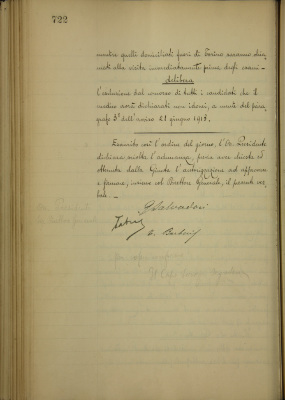 722
mentre quelli domiciliati fuori di Torino saranno chia-
mati alla visita immediatamente prima degli esami -
delibera
l'esclusione dal concorso di tutti i candidati che il
medico avrà dichiarati non idonei, a mente del para-
grafo 3° dell'avviso 21 giugno 1918.
Esaurito così l'ordine del giorno, l'On. Presidente
dichiara sciolta l'adunanza, previa aver chiesto ed
ottenuto dalla Giunta l'autorizzazione ad approvare
e firmare, insieme col Direttore Generale, il presente ver-
bale. -